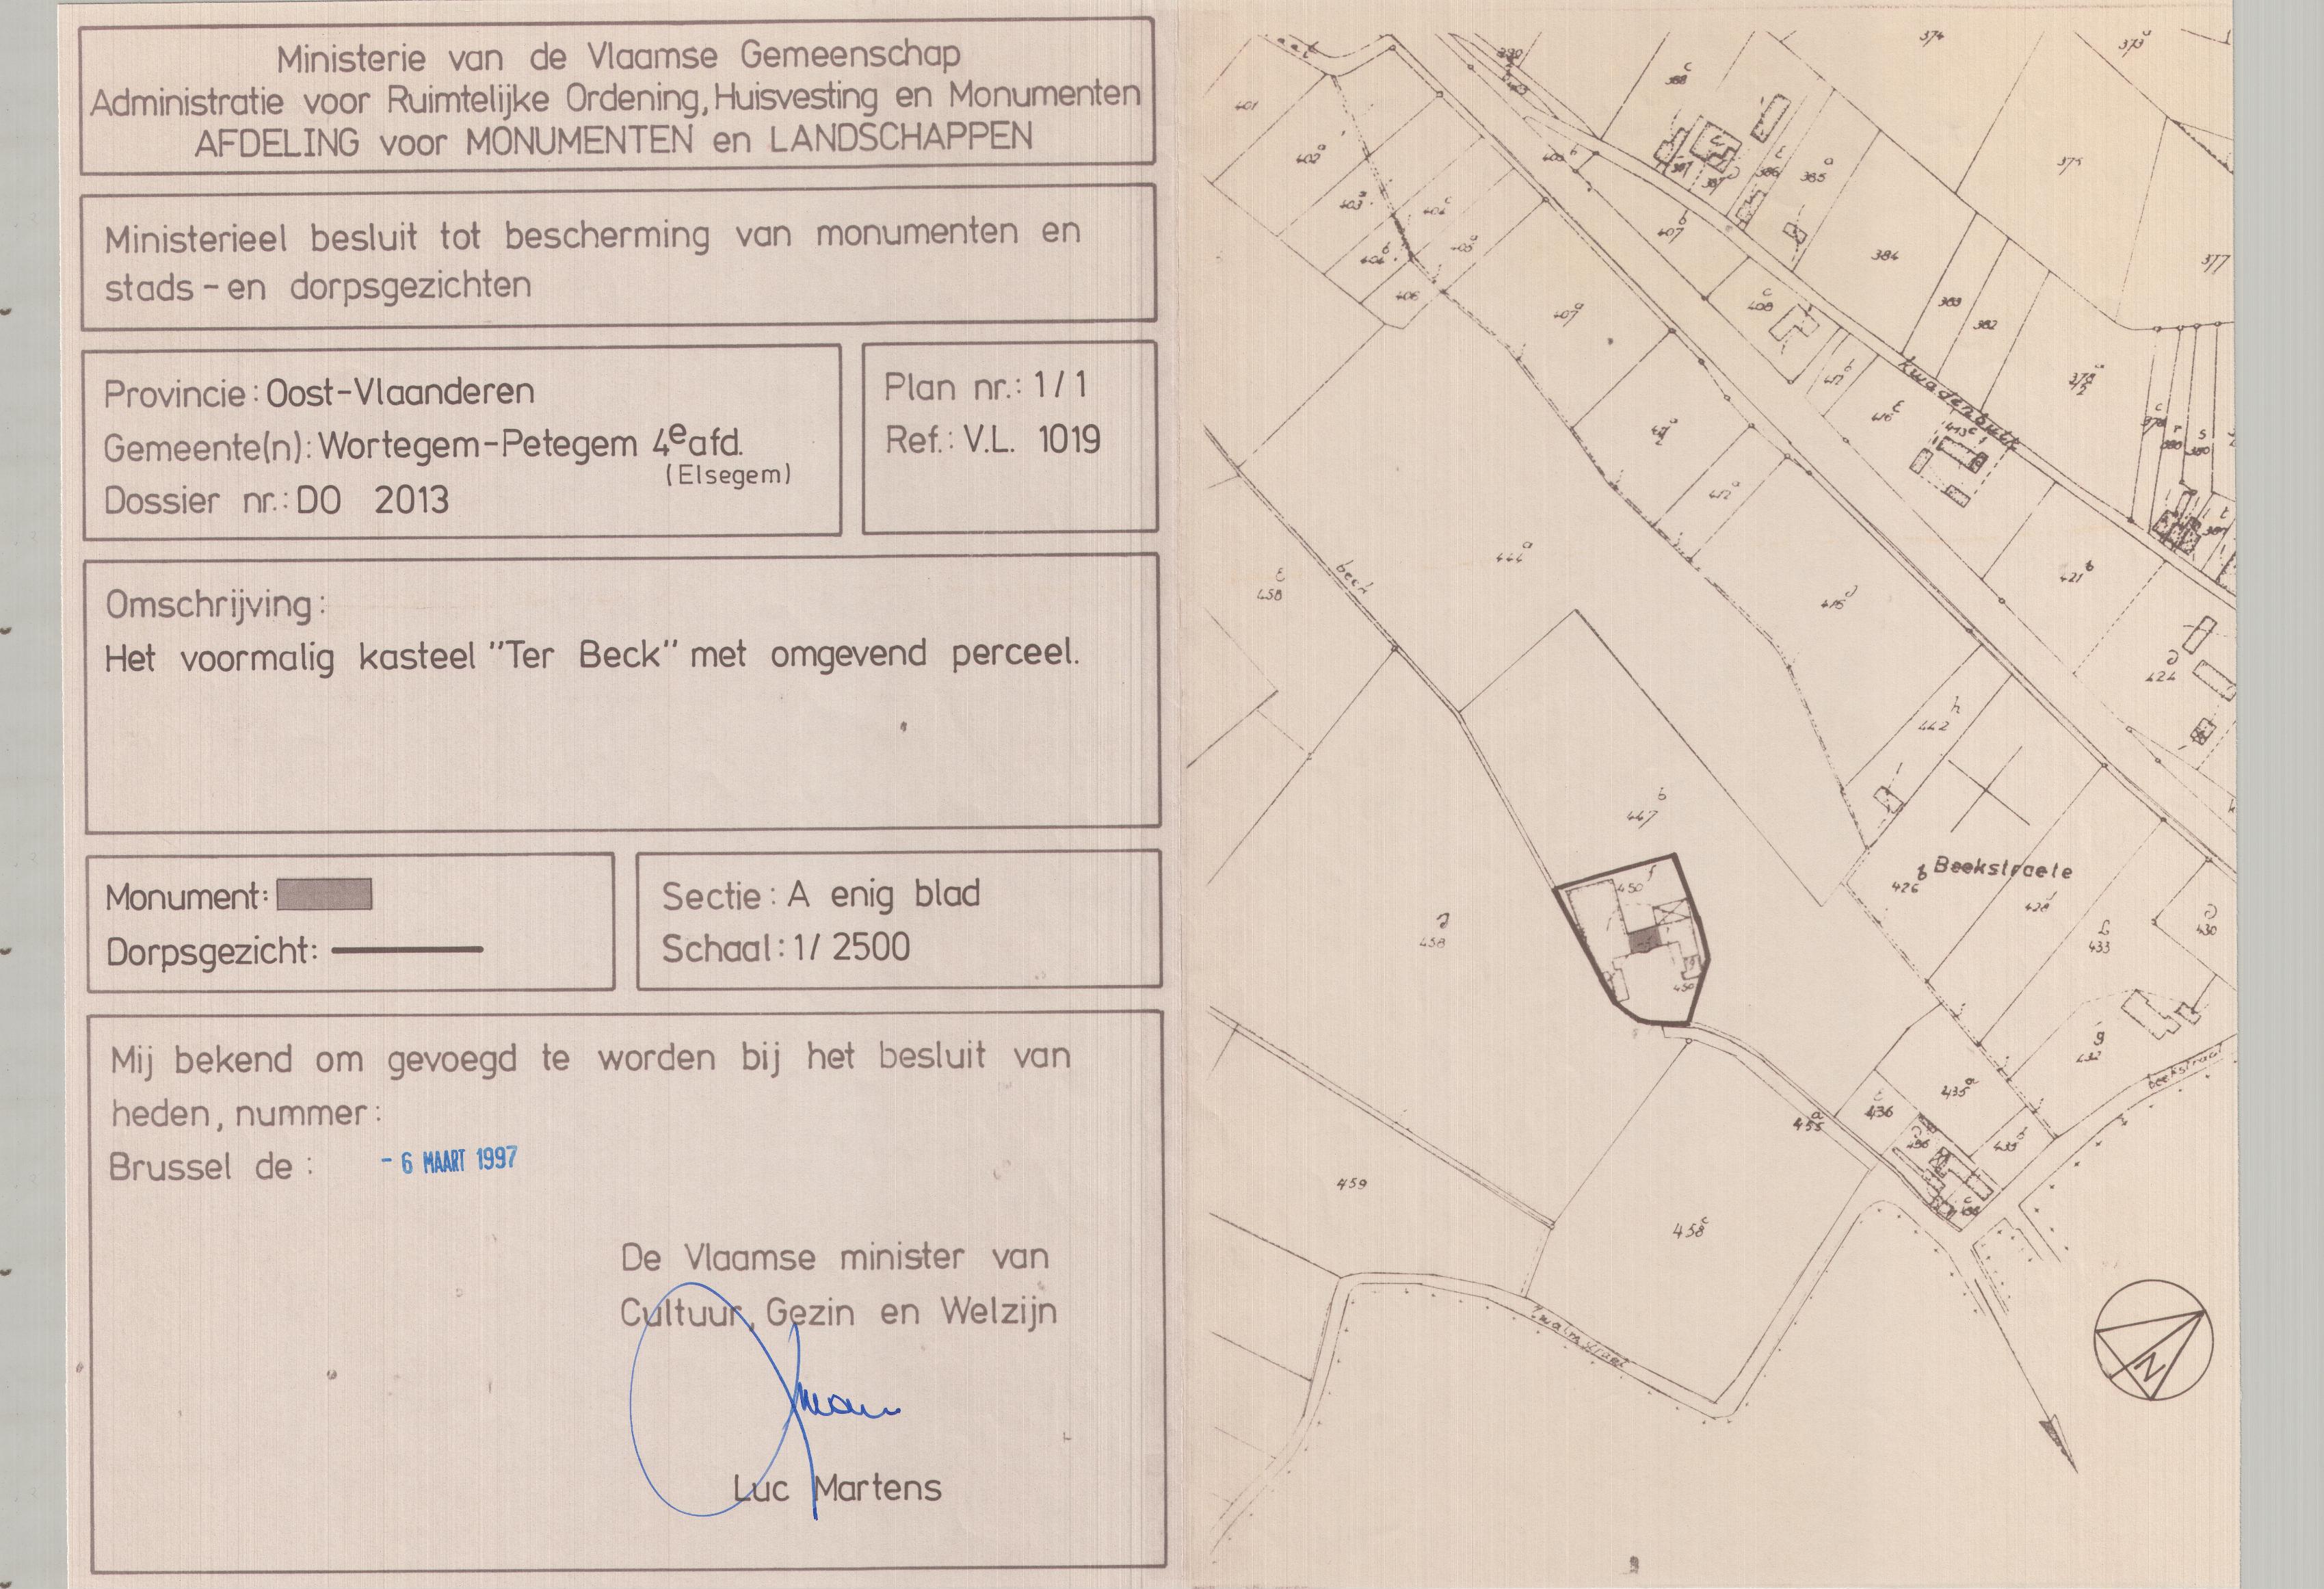 Ministerie van de Vlaamse Gemeenschap
Administratie voor Ruimtelijke Ordening, Huisvesting en Monumenten
AFDELING voor MONUMENTEN en LANDSCHAPPEN
Ministerieel besluit tot bescherming van monumenten en
stads-en dorpsgezichten
Provincie: Oost-Vlaanderen
Gemeente(n): Wortegem-Petegem 4e afd.
(Elsegem)
Dossier nr.: DO 2013
Plan nr.: 1/1
Ref.: V.L. 1019
Omschrijving:
Het voormalig kasteel "Ter Beck" met omgevend perceel.
Monument:
Dorpsgezicht:
Sectie: A enig blad
Schaal: 1/2500
Mij bekend om gevoegd te worden bij het besluit van
heden, nummer:
Brussel de: - 6 MAART 1997
De Vlaamse minister van
Cultuur, Gezin en Welzijn
Luc Martens
374
373a
388c
401
402a
375
386
385a
403a
404c
405a
404b
407b
384
377
406
408c
383
382
409a
416
413c
444a
458
beek
421b
424
442h
447b
Beekstraete
426b
428
433
430
450f
450
458
432g
beekstraat
435a
436
455a
435b
459
458c
N